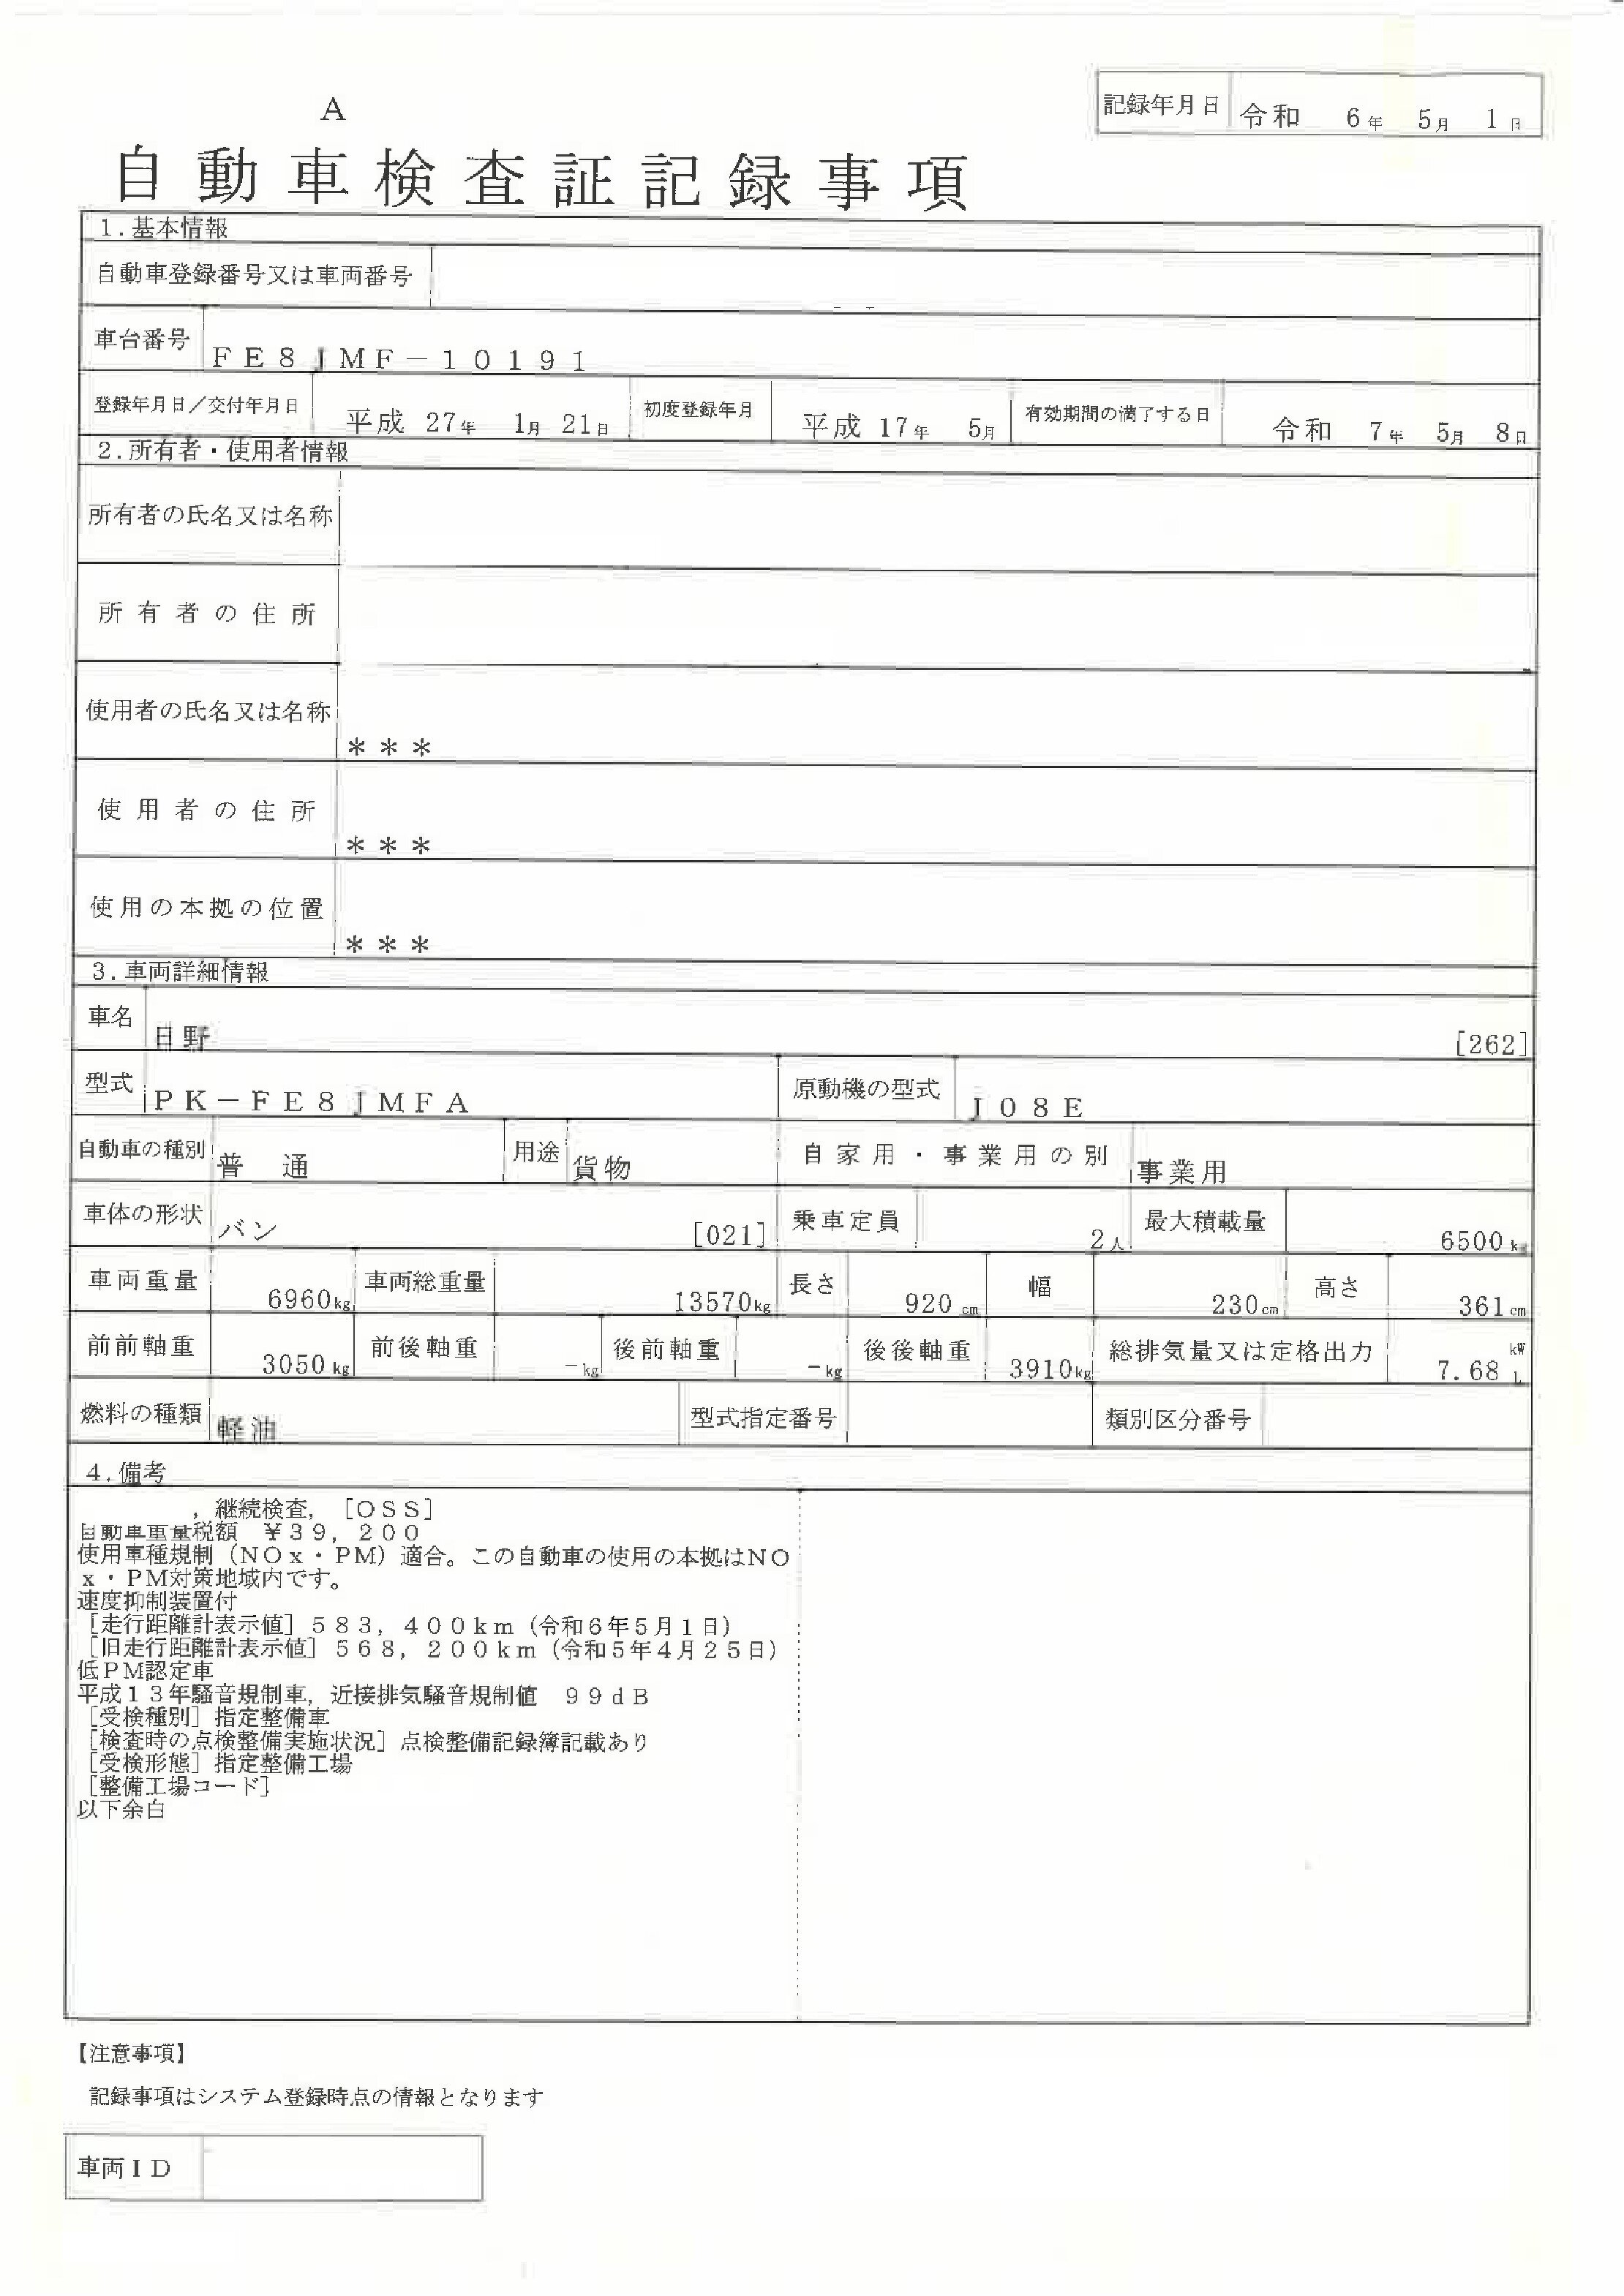 記録年月日 令和 6年 5月 1日
A
自動車検査証記録事項
1.基本情報
自動車登録番号又は車両番号
車台番号 FE8JMF-10191
登録年月日/交付年月日 平成 27年 1月 21日 初度登録年月 平成 17年 5月 有効期間の満了する日 令和 7年 5月 8日
2.所有者・使用者情報
所有者の氏名又は名称
所有者の住所
使用者の氏名又は名称 ***
使用者の住所 ***
使用の本拠の位置 ***
3.車両詳細情報
車名 日野 [262]
型式 PK-FE8JMFA 原動機の型式 J08E
自動車の種別 普 通 用途 貨物 自家用・事業用の別 事業用
車体の形状 バン [021] 乗車定員 2人 最大積載量 6500kg
車両重量 6960kg 車両総重量 13570kg 長さ 920cm 幅 230cm 高さ 361cm
前前軸重 3050kg 前後軸重 -kg 後前軸重 -kg 後後軸重 3910kg 総排気量又は定格出力 7.68 kW L
燃料の種類 軽油 型式指定番号 類別区分番号
4.備考
,継続検査,[OSS]
自動車重量税額 ¥39,200
使用車種規制(NOx・PM)適合。この自動車の使用の本拠はNO
x・PM対策地域内です。
速度抑制装置付
[走行距離計表示値]583,400km(令和6年5月1日)
[旧走行距離計表示値]568,200km(令和5年4月25日)
低PM認定車
平成13年騒音規制車,近接排気騒音規制値 99dB
[受検種別]指定整備車
[検査時の点検整備実施状況]点検整備記録簿記載あり
[受検形態]指定整備工場
[整備工場コード]
以下余白
【注意事項】
記録事項はシステム登録時点の情報となります
車両ID